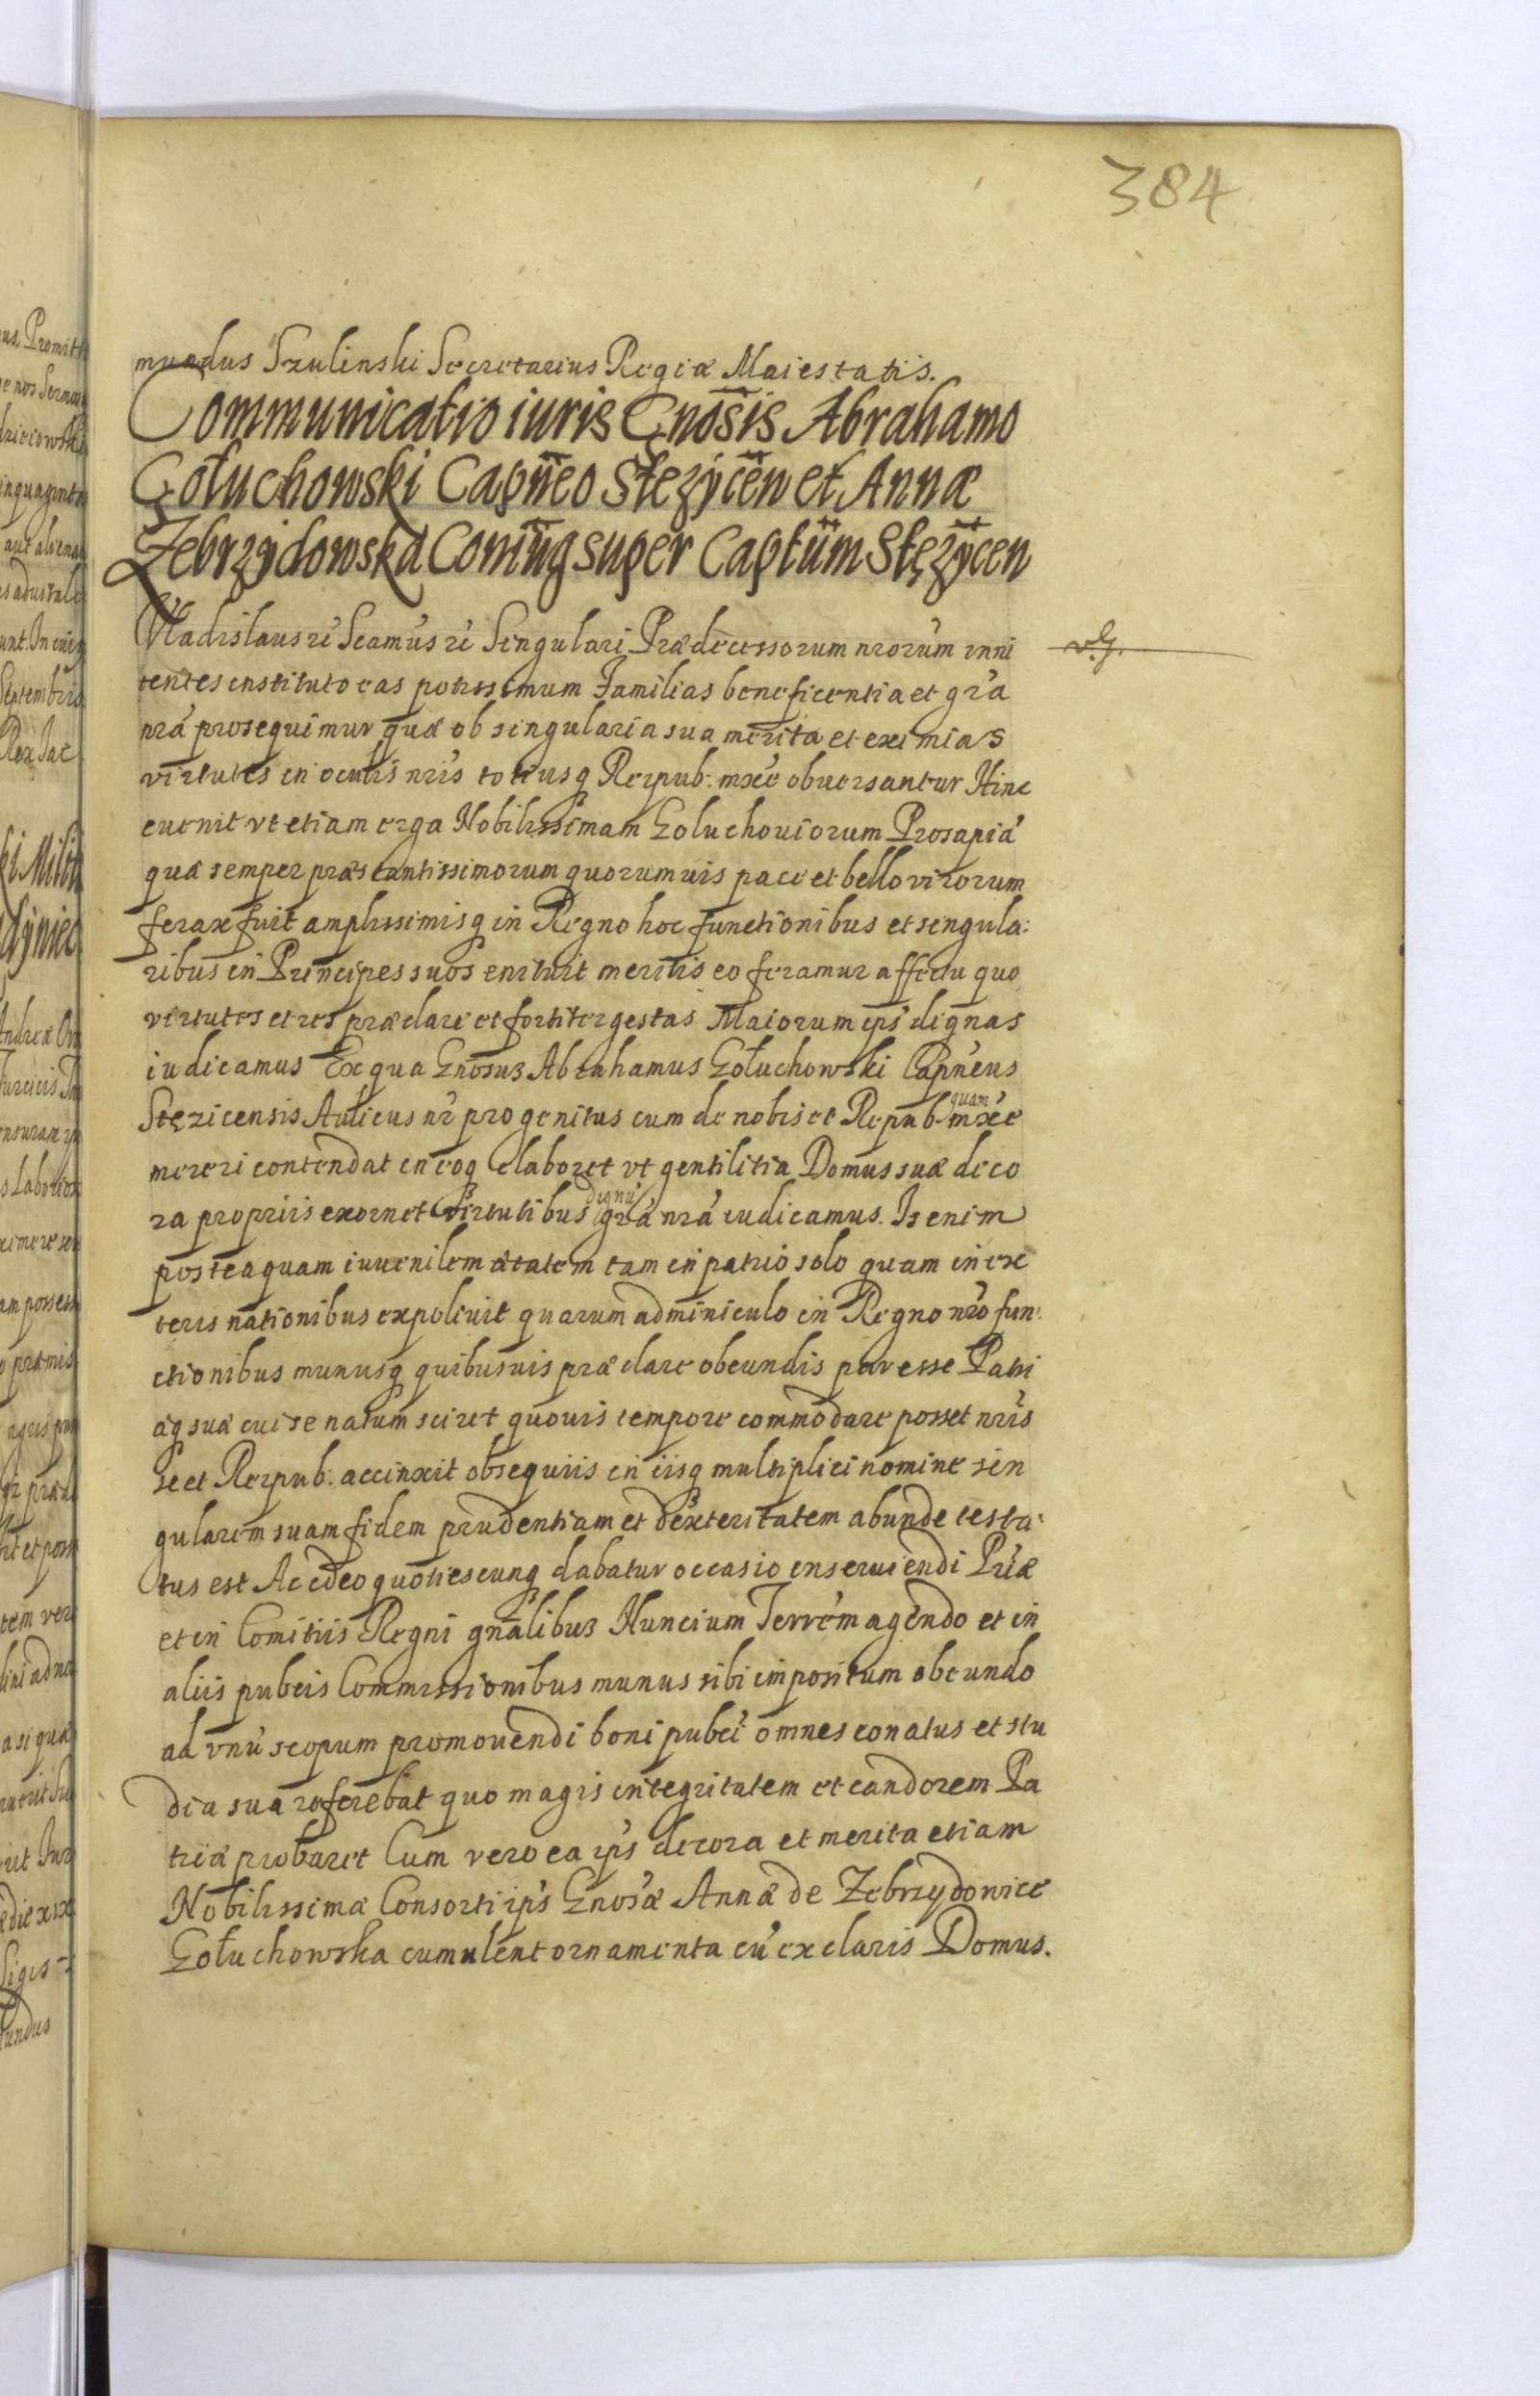 384
mundus Szulinski Secretarius Regiæ Maiestatis.
Communicatio iuris Gnosis Abrahamo
Gołuchowski Capneo Stezÿcen et Annæ
Zebrzÿdowska Coniug super Captum Stęzÿcen
Vladislaus rc̃ Scamus rc̃ Singulari Prædecessorum nrorum inni
tentes instituto eas potissimum Familias beneficentia et gra
nra prosequimur quæ ob singularia sua merita et eximias
virtutes in oculis nris totiusq Reipub: mxe obuersantur Hinc
euenit vt etiam erga Nobilissimam Goluchouiorum Prosapia
quæ semper præstantissimorum quorumuis pace et bello virorum
ferax fuit amplissimisq in Regno hoc functionibus et singula:
ribus in Principes suos enituit meritis eo feramur affectu quo
virtutes et res præclare et fortiter gestas Maiorum ips dignas
iudicamus Ex qua Gnosus Abrahamus Gołuchowski Capneus
Stęzicensis Aulicus nr progenitus cum de nobis et Repub quam mxe
mereri contendat in eoq elaboret vt gentilitia Domus suæ deco
ra propriis exornet virtutibus dignu gra nra iudicamus. Is enim
posteaquam iuuenilem ætatem tam in patrio solo quam in ex
teris nationibus expoliuit quarum adminiculo in Regno nro fun
ctionibus munusq quibusuis præclare obeundis par esse Patri
æq suæ cui se natum sciret quouis tempore commodare posset nris
se et Reipub: accinxit obsequiis in iisq multiplici nomine sin
gularem suam fidem prudentiam et dexteritatem abunde testa
tus est Ac adeo quotiescunq dabatur occasio inseruiendi Priæ
et in Comitiis Regni gnalibus Nuncium Terrem agendo et in
aliis pubcis Commissionibus munus sibi impositum obeundo
ad vnu scopum promouendi boni pubci omnes conatus et stu
dia sua referebat quo magis integritatem et candorem Pa
triæ probaret Cum vero ea ips decora et merita etiam
Nobilissimæ Consorti ips Gnosæ Annæ de Zebrzydowice
Gołuchowska cumulent ornamenta cu ex claris Domus.